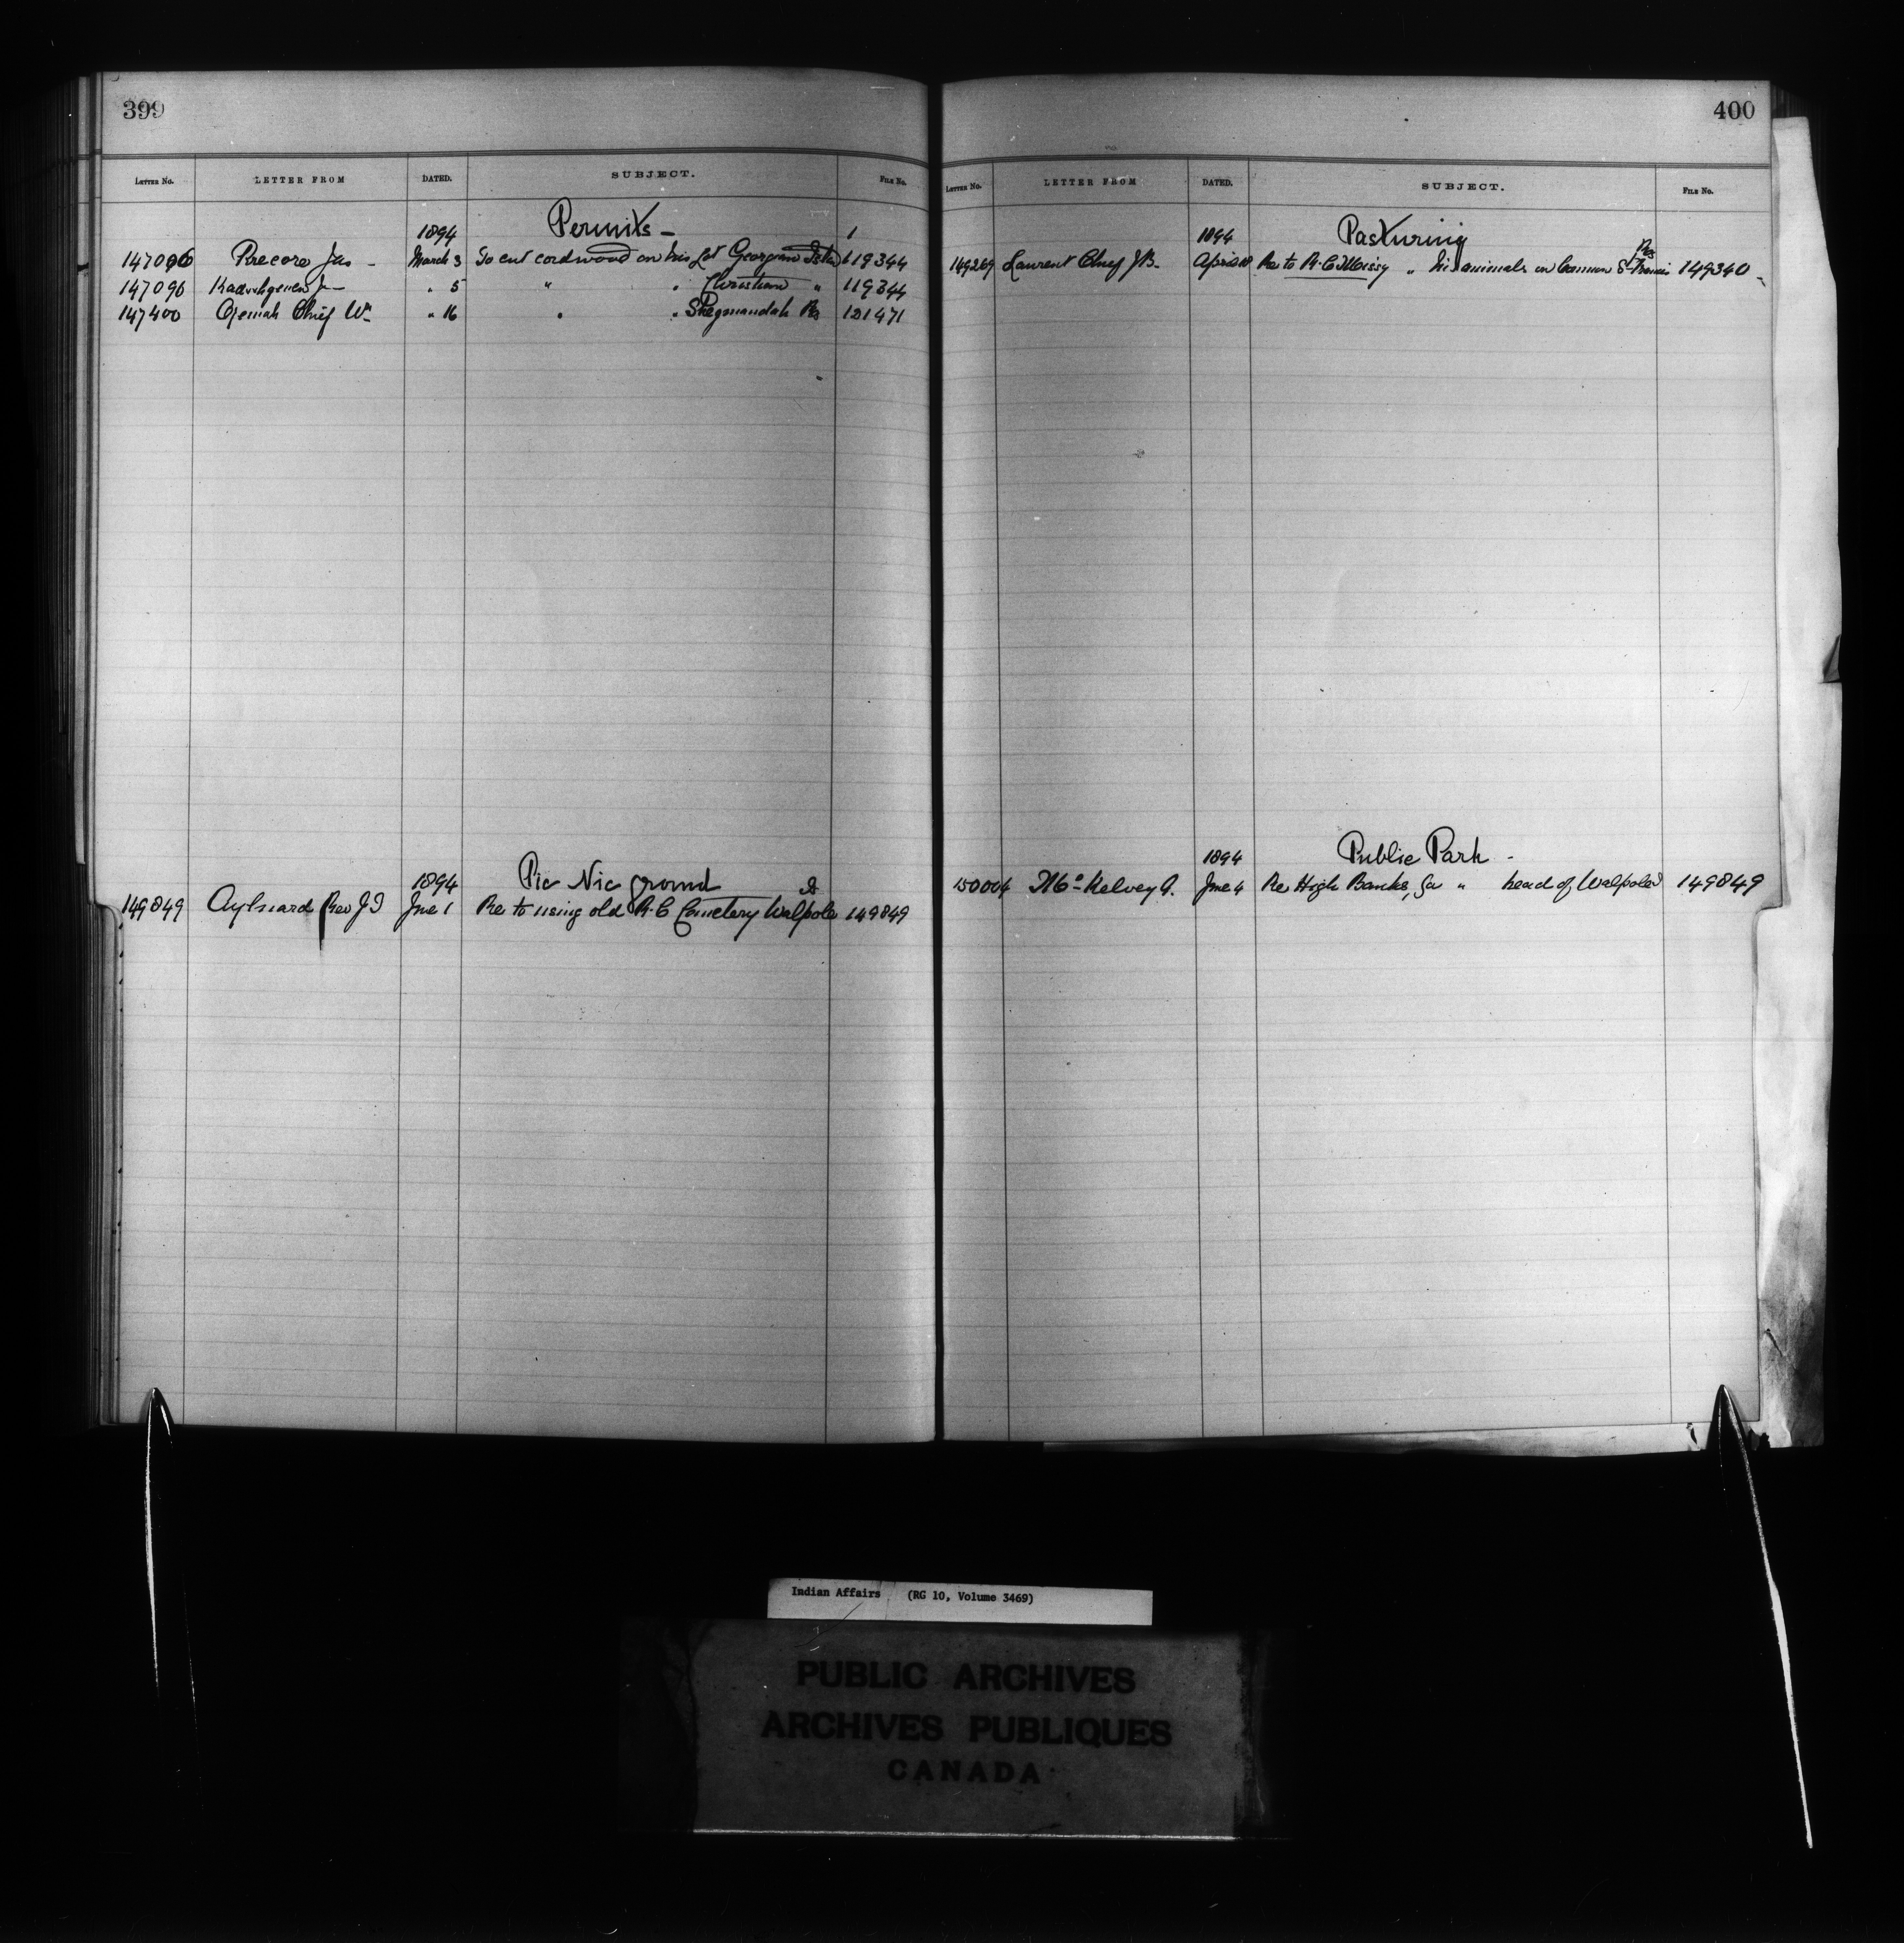 399
LETTER No. LETTER FROM DATED. SUBJECT. FILE No.
1894 Permits - 1
147096 Precore Jas - March 3 To cut cordwood on his Lot Georgian Islds 119344
147096 " 5 " " Christian " 119344
147400 Ogemah Chief Wm " 16 " " Shegmandah Rs 121471
1894 Pic Nic ground
149849 Aylward Rev J I June 1 Re to using old R.C Cemetery Walpole Id 149849
400
LETTER No. LETTER FROM DATED. SUBJECT. FILE No.
1894 Pasturing
149269 Laurent Chief J B. April 18 Re to H. C " his animals on Common St Francis Res 149340
1894 Public Park -
150004 McKelvey A. June 4 Re High Banks, for " head of Walpole Id 149849
Indian Affairs (RG 10, Volume 3469)
PUBLIC ARCHIVES
ARCHIVES PUBLIQUES
CANADA